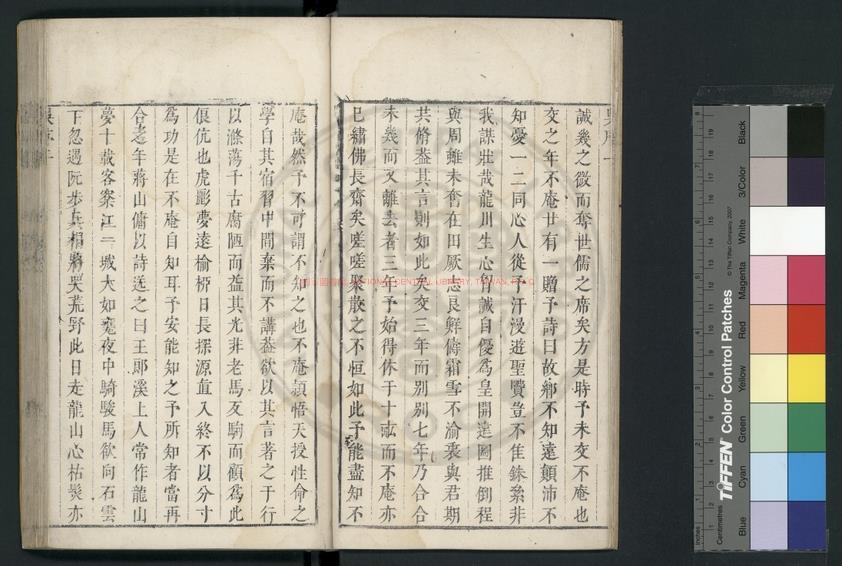 誠幾之微而奪世儒之席矣方是時予未交不庵也
交之年不庵廿有一贈予詩曰故鄉不知遠顛沛不
知憂一二同心人從子汗漫遊聖賢豈不隹銖絫非
我謀壯哉龍川生心胷誠自優為皇開遠圖推倒程
與周離未奮在田厥志良鮮儔霜雪不渝褎與君期
共脩葢其言則如此矣交三年而别别七年乃合合
未幾而又離去者三年予始得休于十畝而不庵亦
已繡佛長齋矣嗟嗟聚散之不恒如此予能盡知不
庵哉然予不可謂不知之也不庵穎悟天授性命之
學自其宿習中間棄而不講葢欲以其言著之于行
以滌蕩千古腐陋而葢其光非老馬反駒而顧為此
俍伉也虎彫夢遠榆枌日長探源直入終不以分寸
為功是在不庵自知耳予安能知之予所知者當再
合老年蔣山傭以詩送之曰王郎溪上人常作龍山
夢十載客寨江一城大如甕夜中騎駿馬欲向石雲
下忽遇阮步兵相將哭荒野此日走龍山心怙髮亦
Black
3/Color
White
Magenta
Red
Yellow
Green
Cyan
Blue
TIFFEN Color Control Patches
© The Tiffen Company, 2007
Centimetres
Inches